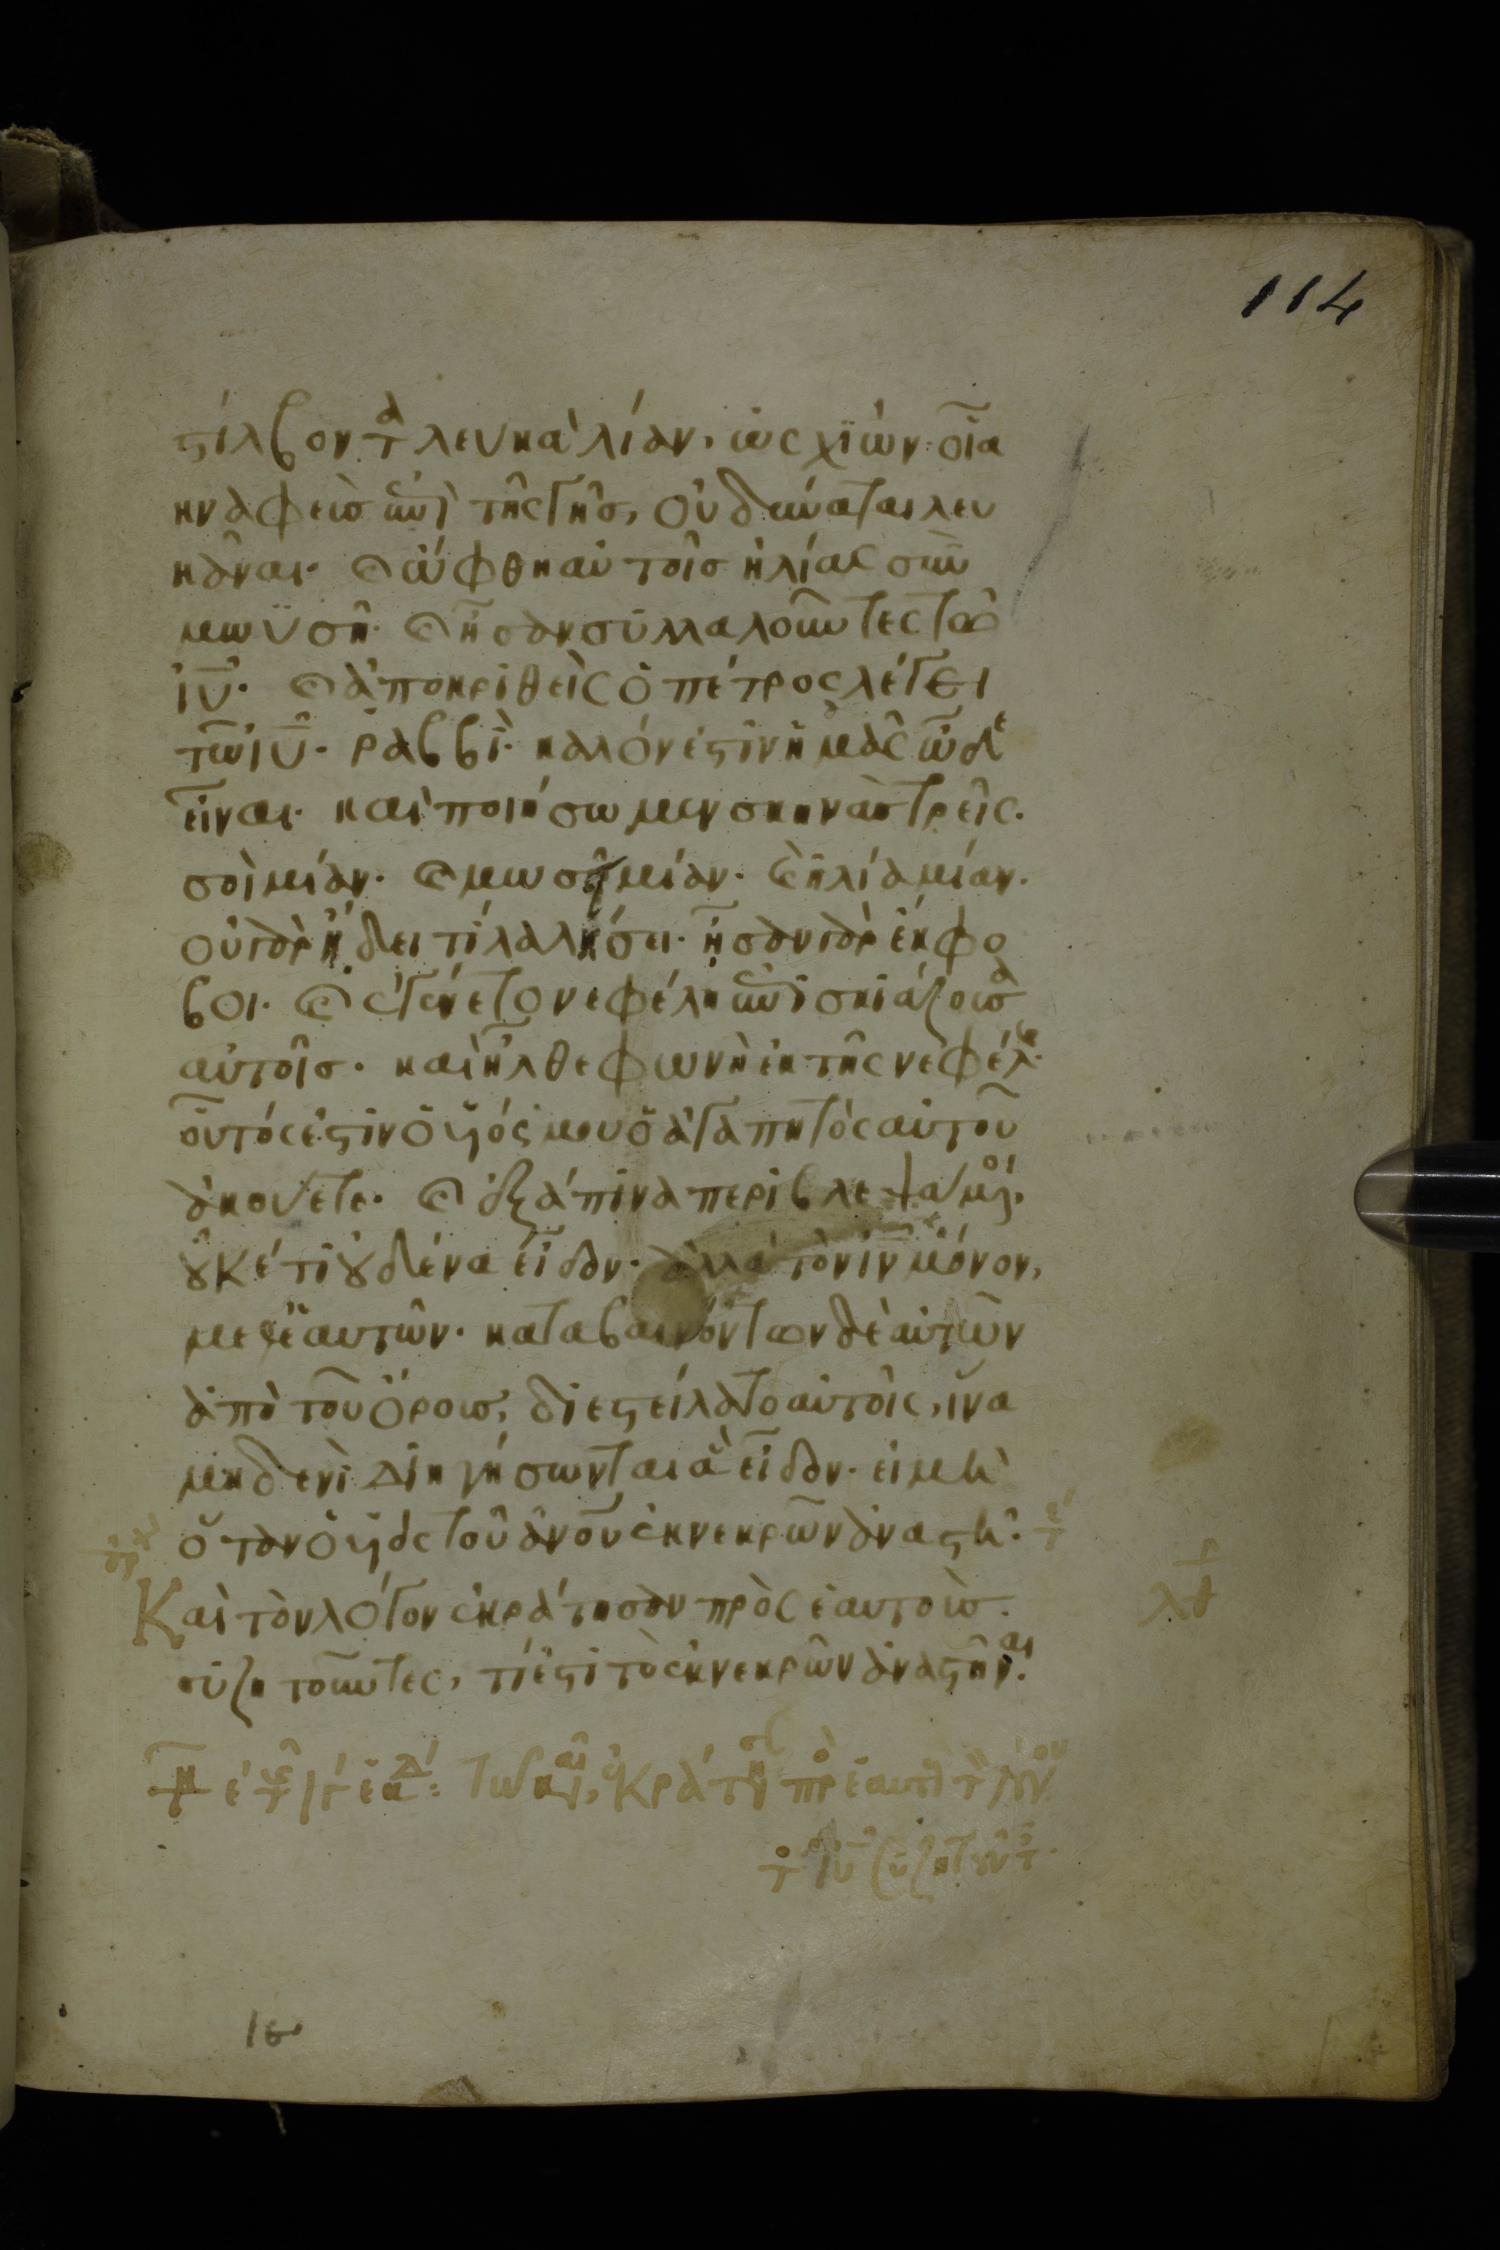 114
στίλβοντα λευκὰ λίαν, ὡς χϊών· οἷα
κναφεὺς ἐπὶ τῆς γῆς, οὐ δύναται λευ
κᾶναι. καὶ ὤφθη αὐτοῖς ἠλίας σὺν
μωϋσῆ. καὶ ἦσαν συλλαλοῦντες τῶ
ἰῦ. καὶ ἀποκριθεὶς ὁ πέτρος λέγει
τῶ ἰῦ. ῥαββὶ. καλόν ἐστιν ἡμᾶς ὧδε
εἶναι. καὶ ποιήσωμεν σκηνὰς τρεῖς.
σοὶ μίαν. καὶ μωσῆ μίαν. καὶ ἠλία μίαν.
οὐ γὰρ ἤδει τί λαλήσει. ἦσαν γὰρ ἔκφο
βοι. καὶ ἐγένετο νεφέλη ἐπισκιάζουσα
αὐτοῖς. καὶ ἦλθε φωνὴ ἐκ τῆς νεφέλης.
οὗτός ἐστιν ὁ υἱός μου ὁ ἀγαπητὸς αὐτοῦ
ἀκούετε. καὶ ἐξάπινα περιβλεψάμενοι,
οὐκέτι οὐδένα εἶδον. ἀλλὰ τὸν ἰν μόνον,
μεθ' ἑαυτῶν. καταβαινόντων δὲ αὐτῶν
ἀπὸ τοῦ ὄρους, διεστείλατο αὐτοῖς, ἵνα
μηδενὶ διηγήσωνται ἃ εἶδον. εἰ μὴ
ὅταν ὁ υἱὸς τοῦ ἀνου ἐκ νεκρῶν ἀναστῆ.
Καὶ τὸν λόγον ἐκράτησαν πρὸς ἑαυτοὺς
συζητοῦντες, τί ἐστι τὸ ἐκ νεκρῶν ἀναστῆναι.